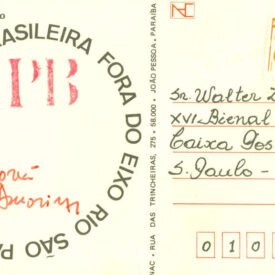 BRASILEIRA FORA DO EIXO RIO SÃO PA
PB
NAC - RUA DAS TRINCHEIRAS, 275 - 58.000 - JOÃO PESSOA - PARAÍBA
Sr. Walter Z
XVI Bienal
Caixa Pos
S. Paulo -
0 1 0